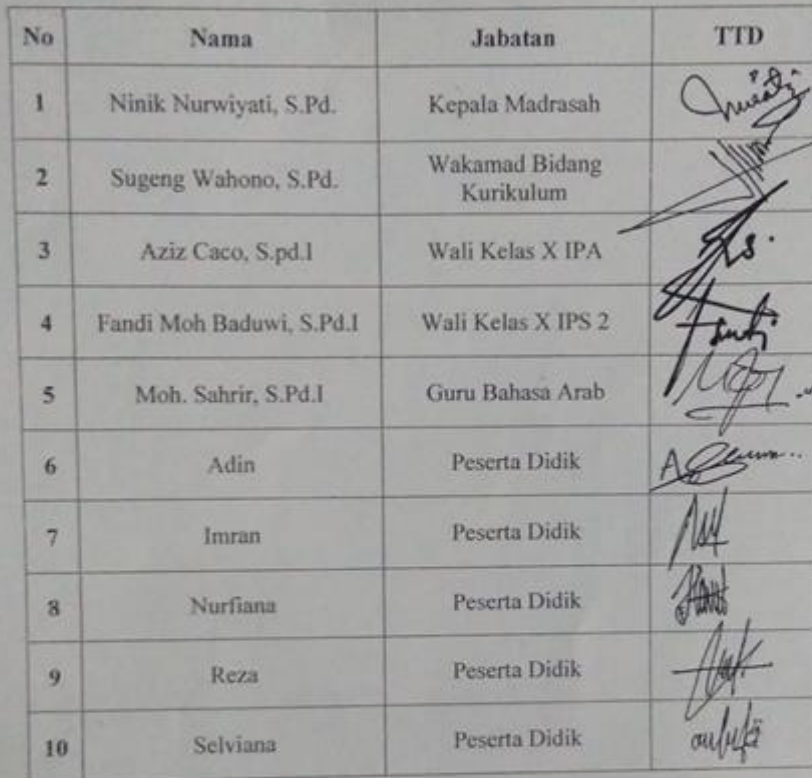 No Nama Jabatan TTD
1 Ninik Nurwiyati, S.Pd. Kepala Madrasah
2 Sugeng Wahono, S.Pd. Wakamad Bidang
Kurikulum
3 Aziz Caco, S.pd.I Wali Kelas X IPA
4 Fandi Moh Baduwi, S.Pd.I Wali Kelas X IPS 2
5 Moh. Sahrir, S.Pd.I Guru Bahasa Arab
6 Adin Peserta Didik
7 Imran Peserta Didik
8 Nurfiana Peserta Didik
9 Reza Peserta Didik
10 Selviana Peserta Didik